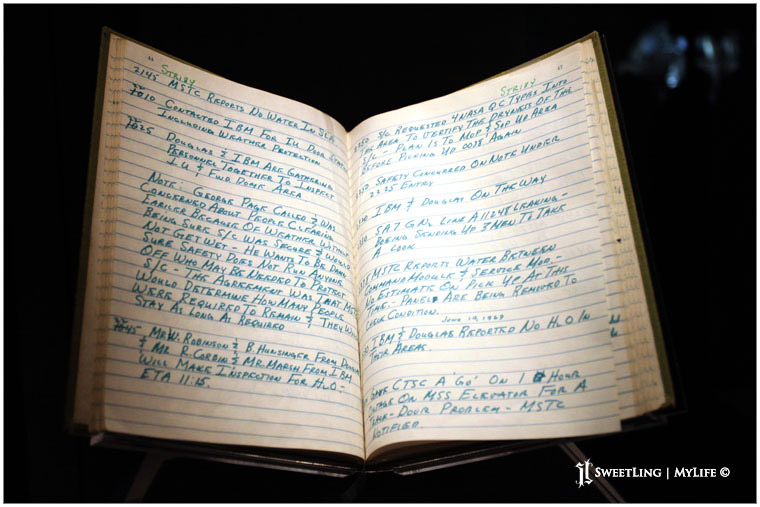 STRIBY
2145 MSTC REPORTS NO WATER IN SLA
CONTACTED IBM FOR IU DOOR STATUS
INCLUDING WEATHER PROTECTION
DOUGLAS & IBM ARE GATHERING
PERSONNEL TOGETHER TO INSPECT
I.U & FWD DOME AREA
NOTE: GEORGE PAGE CALLED & WAS
CONCERNED ABOUT PEOPLE CLEARING
EARLIER BECAUSE OF WEATHER WITHOUT
BEING SURE S/C WAS SECURE & WOULD
NOT GET WET - HE WANTS TO BE DAMN
SURE SAFETY DOES NOT RUN ANYONE
OFF WHO MAY BE NEEDED TO PROTECT
S/C - THE AGREEMENT WAS THAT MSTC
WOULD DETERMINE HOW MANY PEOPLE
WERE REQUIRED TO REMAIN & THEY WILL
STAY AS LONG AS REQUIRED
MR W. ROBINSON & B. HUNSINGER FROM DOUGLAS
& MR. R. CORBIN & MR. MARSH FROM IBM
WILL MAKE INSPECTION FOR H2O -
ETA 11:15
STRIBY
S/C REQUESTED 4 NASA QC TYPES INTO
THE AREA TO VERIFY THE DRYNESS OF THE
S/C - PLAN IS TO MOP & SOP UP AREA
BEFORE PICKING UP 0038 AGAIN
SAFETY CONCURRED ON NOTE UNDER
2225 ENTRY
IBM & DOUGLAS ON THE WAY
SA7 GN2 LINE A11248 LEAKING -
BOEING SENDING UP 3 MEN TO TAKE
A LOOK
MSTC REPORTS WATER BETWEEN
COMMAND MODULE & SERVICE MOD. -
NO ESTIMATE ON PICK UP AT THIS
TIME - PANELS ARE BEING REMOVED TO
CHECK CONDITION.
JUNE 19, 1969
IBM & DOUGLAS REPORTED NO H2O IN
THEIR AREAS.
GAVE CTSC A "GO" ON 1 HOUR
OUTAGE ON MSS ELEVATOR FOR A
DOOR PROBLEM - MSTC
NOTIFIED.
SWEETLING | MYLIFE ©